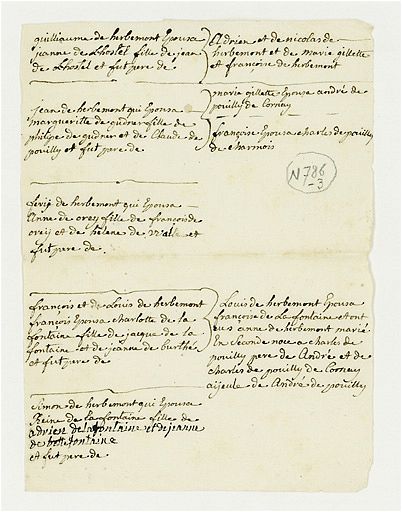 guilliaume de herbemont Epousa
jeanne de Lhostel fille de jean
de Lhostel et fut pere de
Adrien et de nicolas de
herbemont et de marie gillette
et francoise de herbemont
marie gillette Epousa andré de
pouilly de Cornay
françoise Epousa charles de pouilly
de charmois
jean de herbemont qui Epousa
margueritte de fille de
philipe de et de Claude de
pouilly et fut pere de
N 786
-3
herbemont qui Epousa
Anne de orey fille de françois de
oreij et de helene de et
fut pere de
françois et de Louis de herbemont
françois Epousa charlotte de la
fontaine fille de jacque de la
fontaine et de jeanne de
et fut pere de
Louis de herbemont Epousa
françoise de La fontaine et ont
eus anne de herbemont marié
En Seconde noce a charles de
pouilly pere de André et de
charles de pouilly de Cornay
aijeule de André de pouilly
Simon de herbemont qui Epousa
Reine de la fontaine fille de
adrien de la fontaine et de jeanne
de
et fut pere de